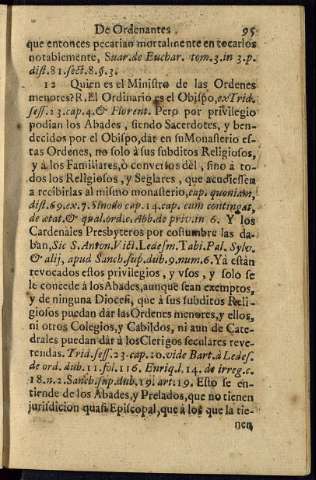 De Ordenantes. 95
que entonces pecarian mortalmente en tocarlos
notablemente, Suar.de Euchar. tom.3.in 3.p.
dist.81.sect.8.§.3.
12 Quien es el Ministro de las Ordenes
menores? R. El Ordinario es el Obispo, ex Trid.
sess.23.cap.4.& Florent. Pero por privilegio
podian los Abades, siendo Sacerdotes, y ben-
decidos por el Obispo, dar en su Monasterio es-
tas Ordenes, no solo à sus subditos Religiosos,
y à los Familiares, ò conversos dèl, sino a to-
dos los Religiosos, y Seglares, que acudiessen
a recibirlas al mismo monasterio, cap. quoniam,
dist.69.ex 7. Sinodo cap.14.cap. cum contingat,
de ætat.& qual.ord.c.Abb.de priv.in 6. Y los
Cardenales Presbyteros por costumbre las da-
ban, Sic S.Anton.Vict.Ledesm.Tabi.Pal. Sylv.
& alij, apud Sanch.sup.dub.9.num.6. Ya estàn
revocados estos privilegios, y vsos, y solo se
le concede à los Abades, aunque sean exemptos,
y de ninguna Diocesi, que à sus subditos Reli-
giosos puedan dàr las Ordenes menores, y ellos,
ni otros Colegios, y Cabildos, ni aun de Cate-
drales puedan dàr à los Clerigos seculares reve-
rendas. Trid.sess.23.cap.10.vide Bart.à Ledes.
de ord.dub.11.fol.116. Enriq.l.14.de irreg.c.
18.n.2.Sanch.sup.dub.19.art.19. Esto se en-
tiende de los Abades, y Prelados, que no tienen
jurisdicion quasi Episcopal, que à los que la tie-
nen